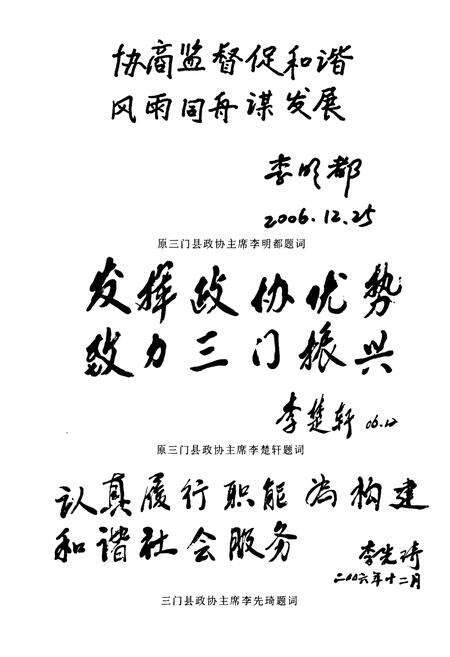 协商监督促和谐
风雨同舟谋发展
李明都
2006.12.25
原三门县政协主席李明都题词
发挥政协优势
致力三门振兴
李楚轩 06.12
原三门县政协主席李楚轩题词
认真履行职能为构建
和谐社会服务
李先琦
二〇〇六年十二月
三门县政协主席李先琦题词